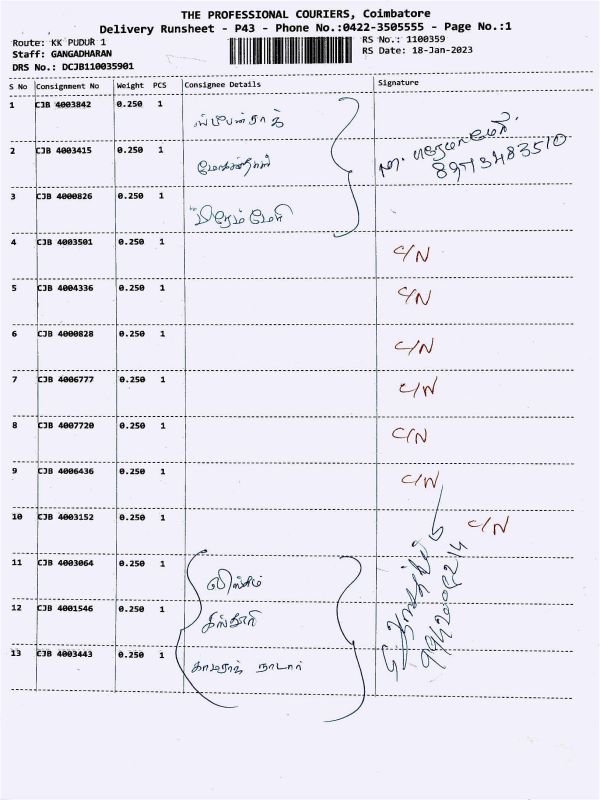 THE PROFESSIONAL COURIERS, Coimbatore
Delivery Runsheet - P43 - Phone No.:0422-3505555 - Page No.:1
Route: KK PUDUR 1
RS No.: 1100359
Staff: GANGADHARAN
RS Date: 18-Jan-2023
DRS No.: DCJB110035901
S No Consignment No Weight PCS Consignee Details Signature
1 CJB 4003842 0.250 1
2 CJB 4003415 0.250 1 8973483510
3 CJB 4000826 0.250 1 பிரேம் மேரி
4 CJB 4003501 0.250 1 C/N
5 CJB 4004336 0.250 1 C/N
6 CJB 4000828 0.250 1 C/N
7 CJB 4006777 0.250 1 C/N
8 CJB 4007720 0.250 1 C/N
9 CJB 4006436 0.250 1 C/N
10 CJB 4003152 0.250 1 C/N
11 CJB 4003064 0.250 1 லிங்கம்
12 CJB 4001546 0.250 1
13 CJB 4003443 0.250 1 காமராஜ் நாடார்